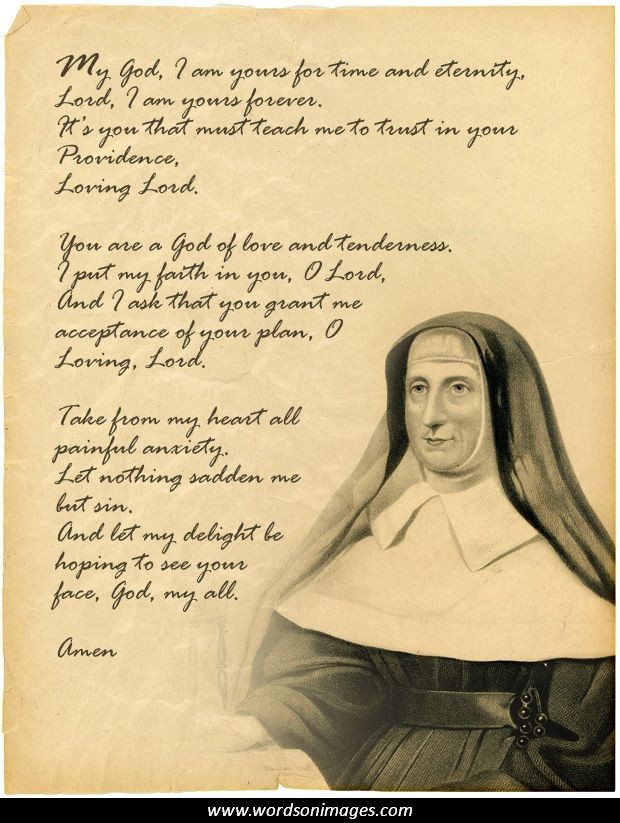 My God, I am yours for time and eternity,
Lord, I am yours forever.
It's you that must teach me to trust in your
Providence,
Loving Lord.
You are a God of love and tenderness.
I put my faith in you, O Lord,
And I ask that you grant me
acceptance of your plan, O
Loving, Lord.
Take from my heart all
painful anxiety.
Let nothing sadden me
but sin.
And let my delight be
hoping to see your
face, God, my all.
Amen
www.wordsonimages.com